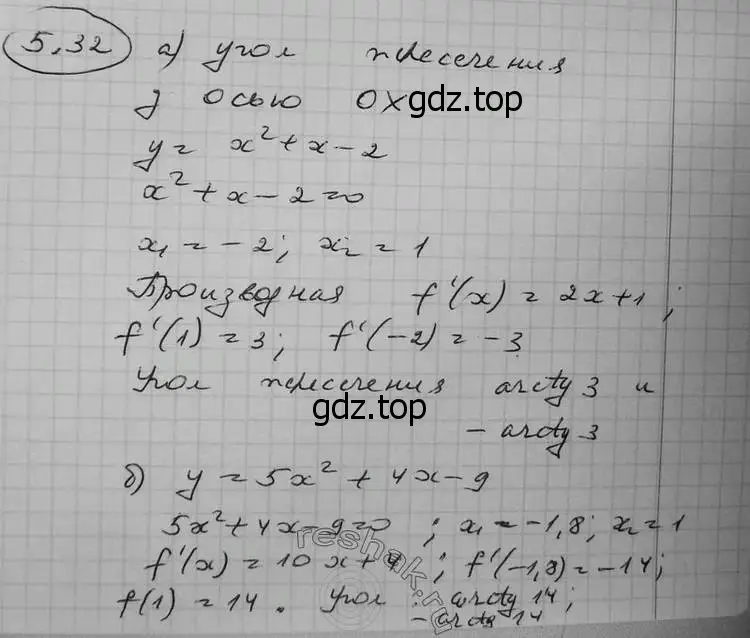 5.32 а) угол пересечения
с осью OX
gdz.top
y = x² + x - 2
x² + x - 2 = 0
x₁ = -2; x₂ = 1
Производная f'(x) = 2x+1;
f'(1) = 3; f'(-2) = -3
Угол пересечения arctg 3 и
gdz.top
- arctg 3
б) y = 5x² + 4x - 9
5x² + 4x - 9 = 0; x₁ = -1,8; x₂ = 1
reshak.ru
f'(x) = 10x + 4; f'(-1,8) = -14;
f(1) = 14. Угол: arctg 14;
- arctg 14